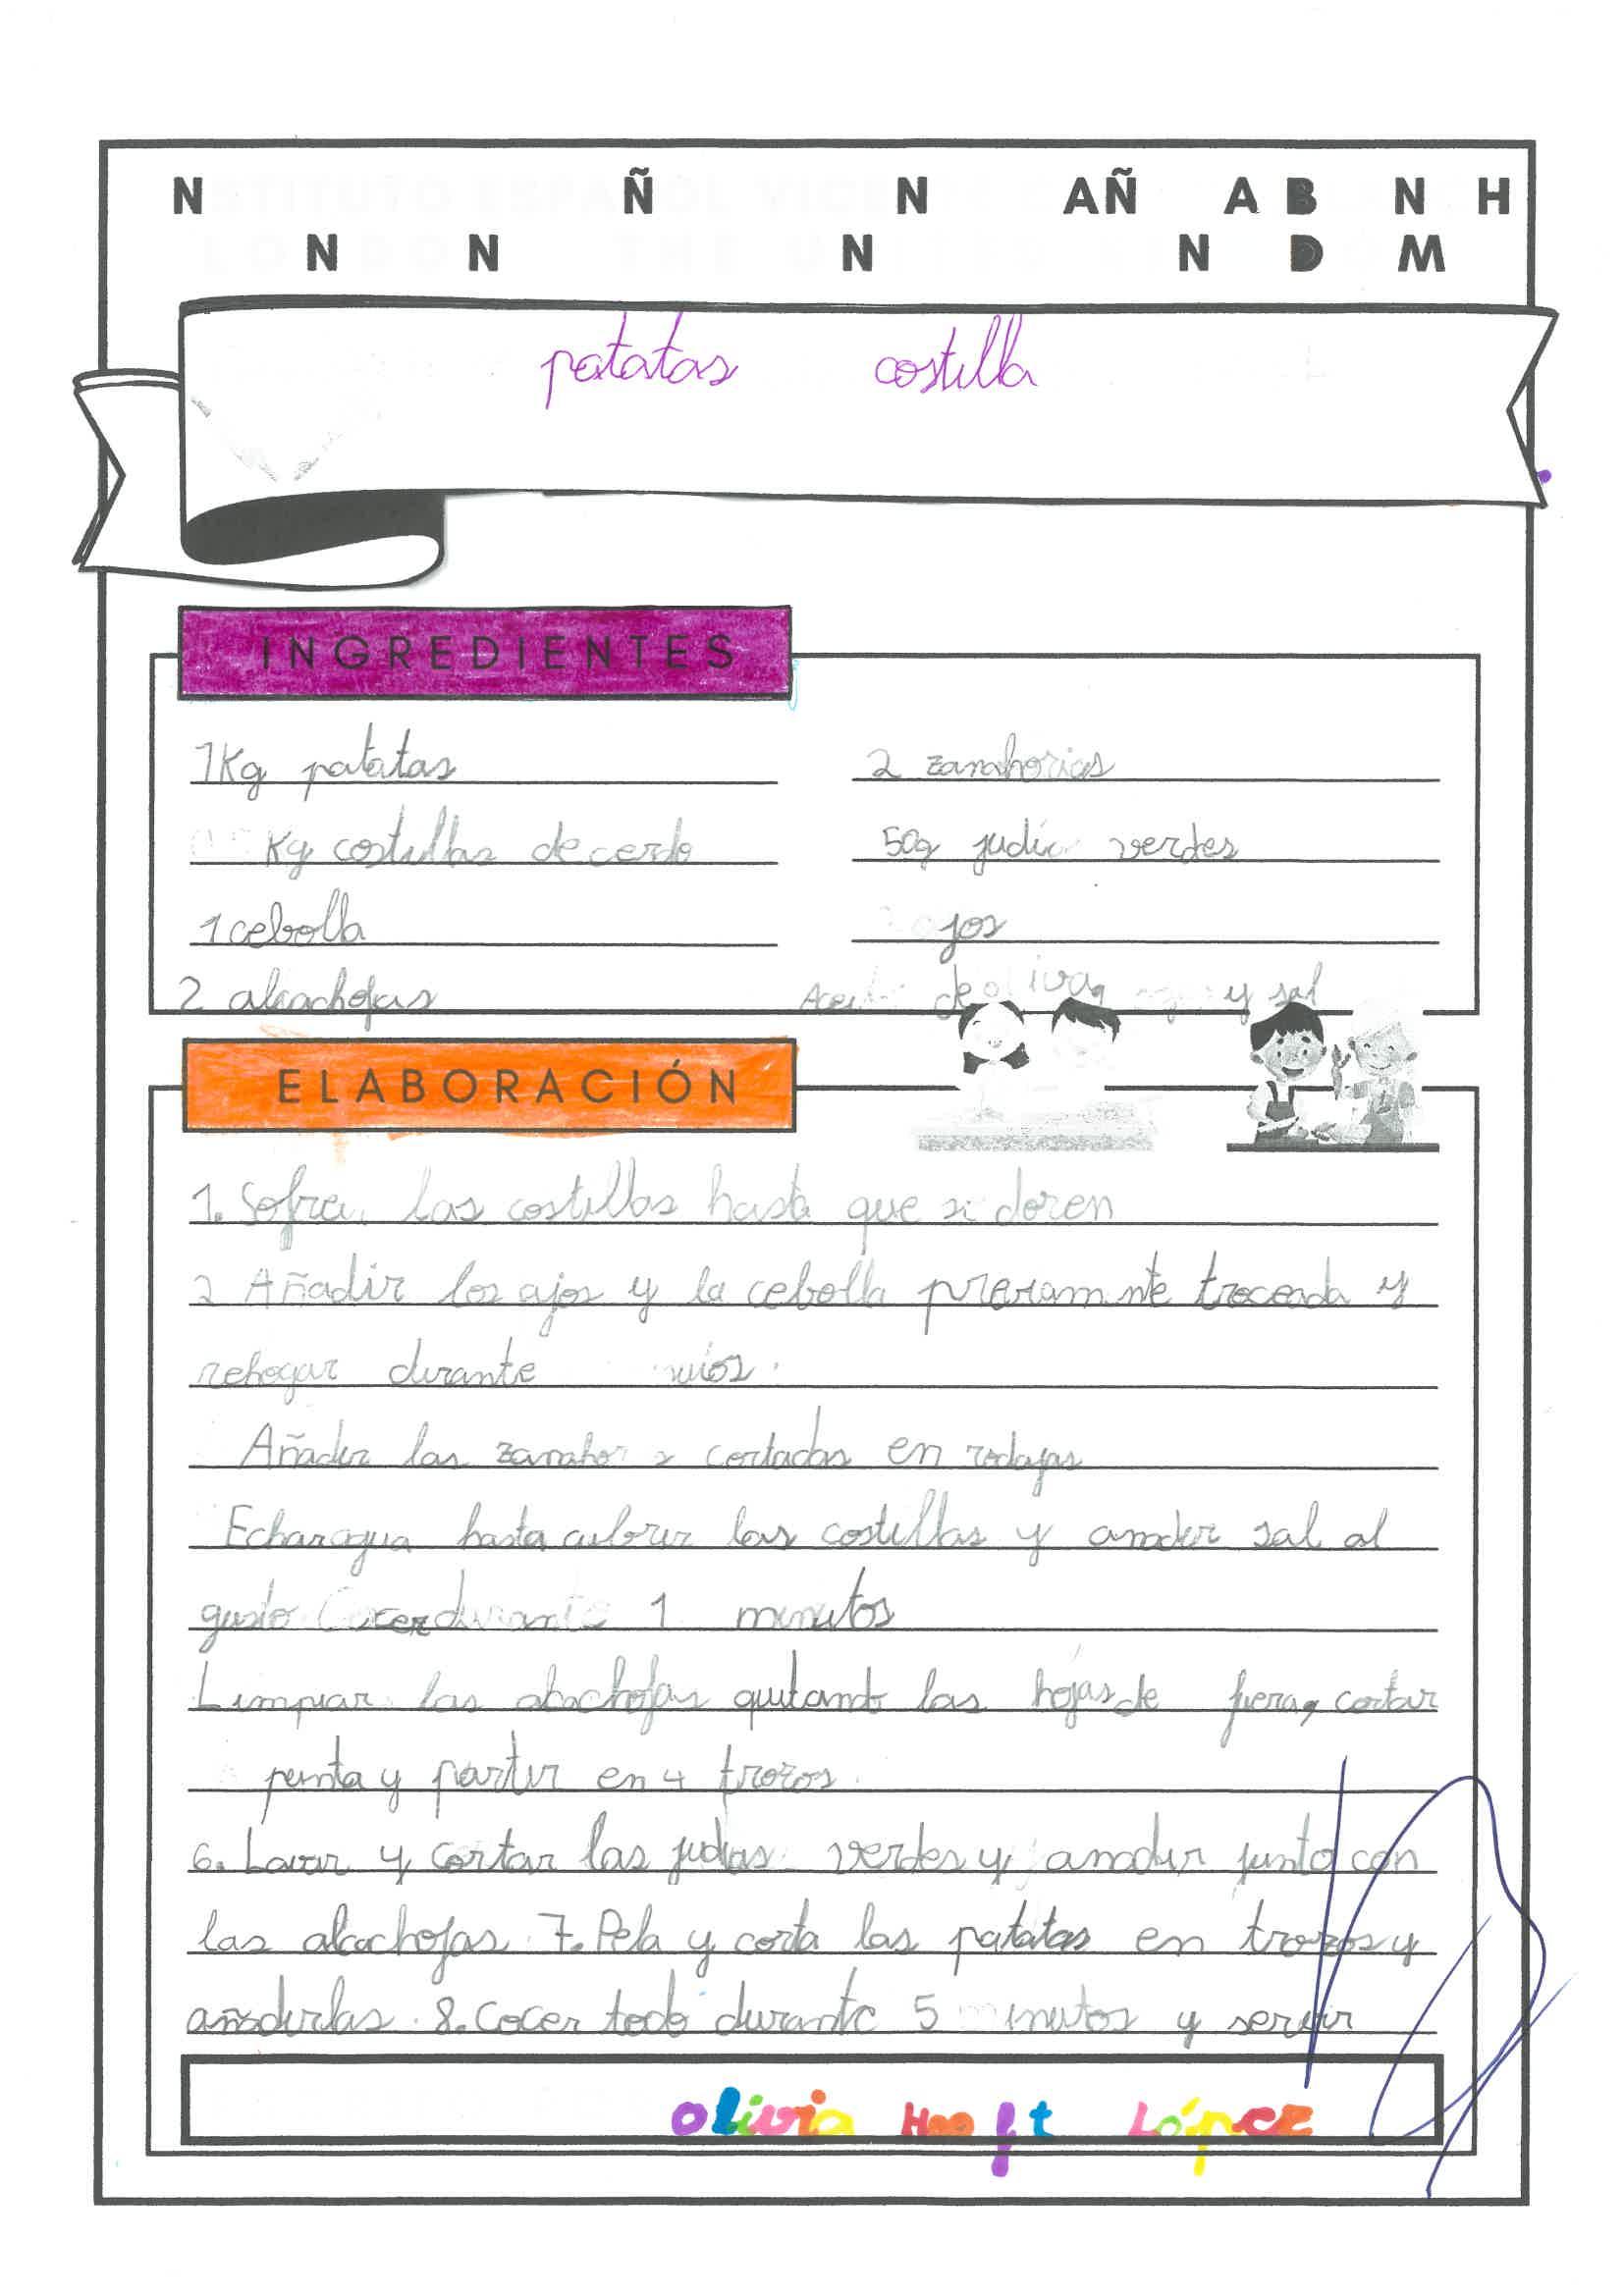 patatas costilla
INGREDIENTES
1Kg patatas
2 zanahorias
Kg costillas de cerdo
50g verdes
1 cebolla
ajos
2 alcachofas
de oliva, y sal
ELABORACIÓN
1. las costillas hasta que se doren
2 Añadir los ajos y la cebolla troceada y
rehogar durante
Añadir las cortadas en rodajas
Echar agua hasta cubrir las costillas y anadir sal al
gusto Cocer durante 1 minutos
Limpiar las alcachofas quitando las hojas de fuera, cortar
punta y partir en 4 trozos.
6. Lavar y cortar las judias verdes y anadir junto con
las alcachofas. 7. Pela y corta las patatas en trozos y
añadirlas. 8. Cocer todo durante 5 minutos y servir
Olivia Hooft López